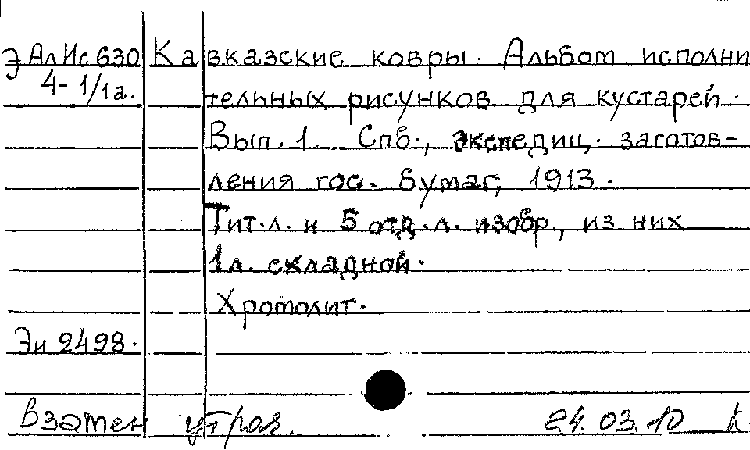 ЭАлИс630 Кавказские ковры. Альбом исполни
4-1/1а. тельных рисунков для кустарей.
Вып. 1. Спб., экспедиц. заготов-
ления гос. бумаг, 1913.
Тит.л. и 5 отд.л. изобр., из них
1л. складной.
Хромолит.
Эи 2498.
Взамен утрач. 24.03.10